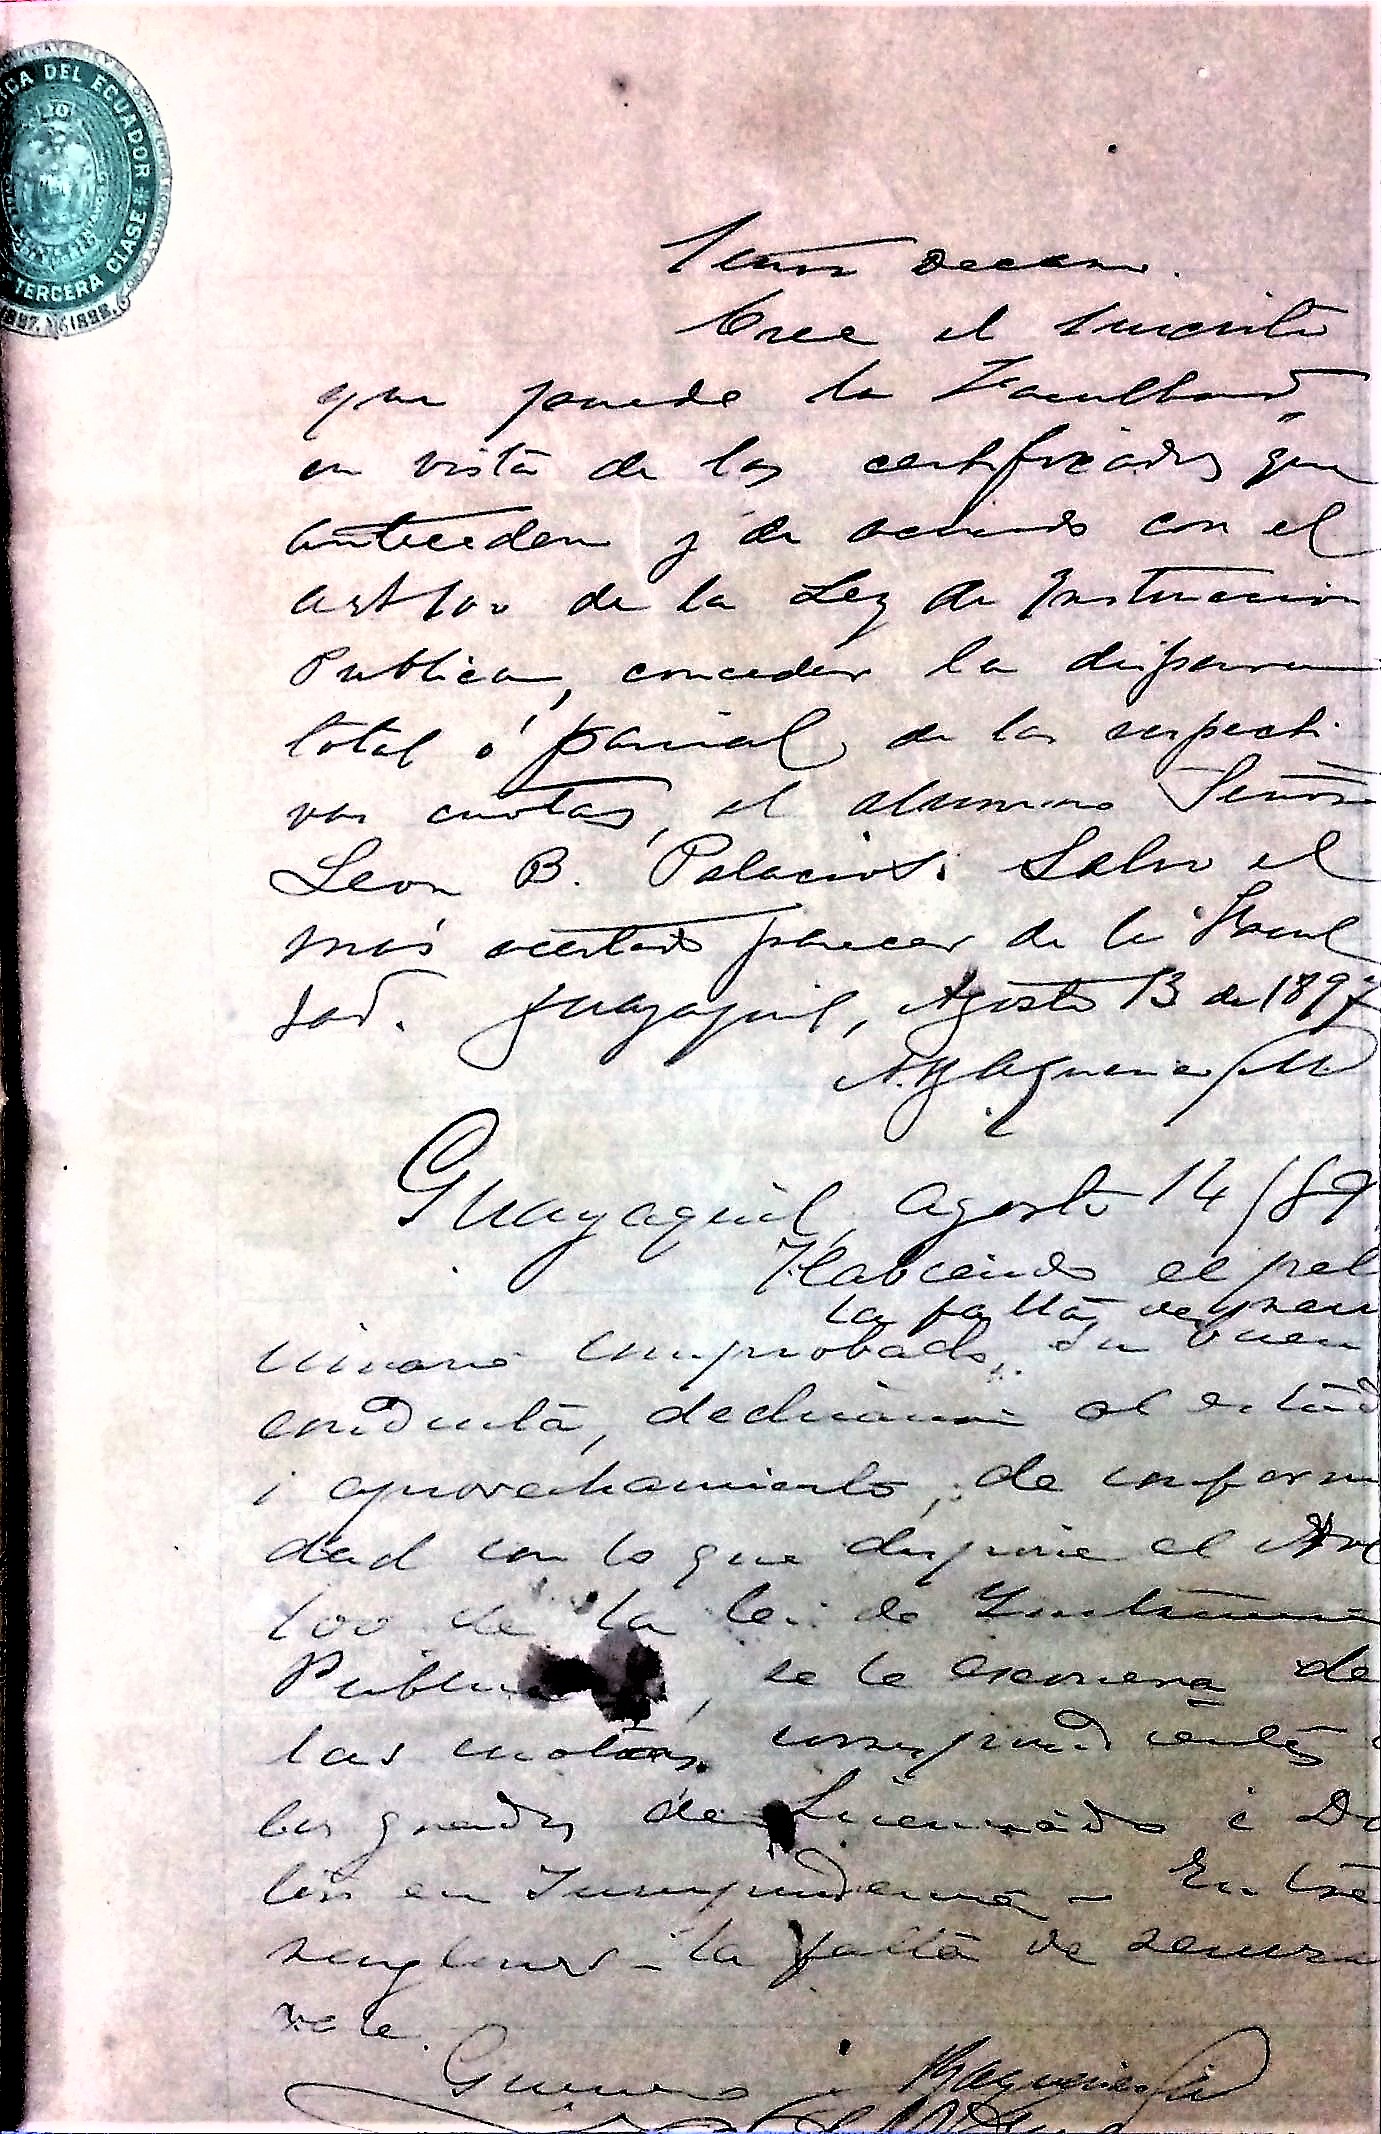 ICA DEL ECUADOR
TERCERA CLASE
1897. 1898.
Señor Decano.
Cree el suscrito
que puede la Facultad
en vista de los certificados que
anteceden y de acuerdo con el
art 100 de la Ley de Instruccion
Publica, conceder la dispensa
total ó parcial, de las respecti
vas cuotas, al alumno Señor
Leon B. Palacios. Salvo el
más acertado parecer de la Facul
tad. Guayaquil, Agosto 13 de 1897
Guayaquil, agosto 14/89
Habiendo el
la falta de
comprobado, su buen
conducta, dedicacion al estud
i aprovechamiento, de conform
dad con lo que dispone el Art
100 de la lei de Instruccion
Publica, se le exonera de
las cuotas correspondientes
los grados de Licenciado i Do
tor en Jurisprudencia - Entre
renglones - la falta de
vale.